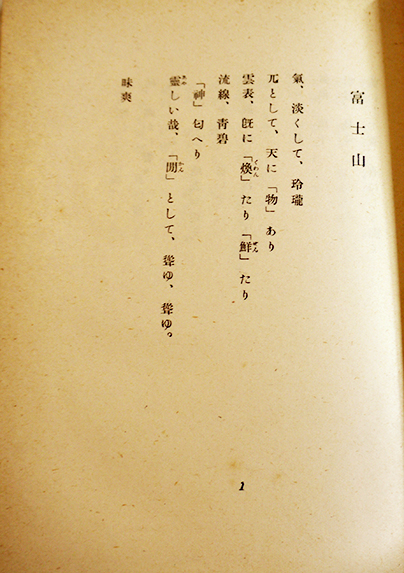 富士山
氣、淡くして、玲瓏
兀として、天に「物」あり
雲表、旣に「煥」たり「鮮」たり
流線、靑碧
「神」匂へり
靈しい哉、「閒」として、聳ゆ、聳ゆ。
昧爽
1